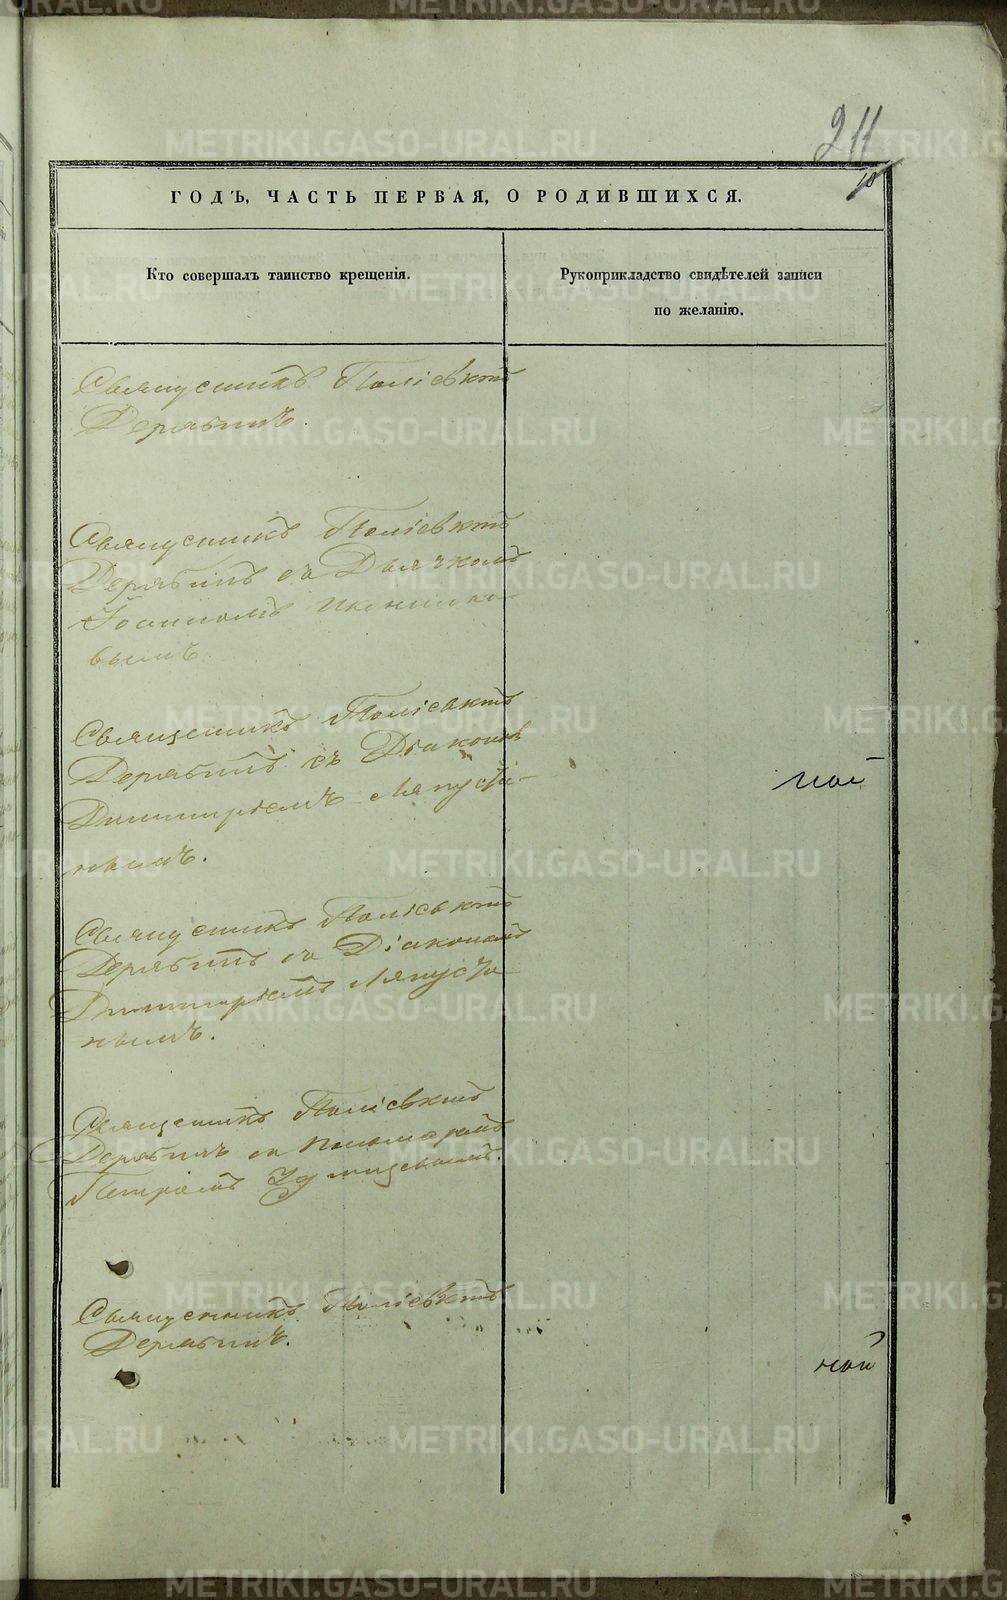 211
10
ГОДЪ, ЧАСТЬ ПЕРВАЯ, О РОДИВШИХСЯ.
Кто совершалъ таинство крещенія.
Рукоприкладство свидѣтелей записи
по желанію.
Священникъ Поліевктъ
Дерябинъ.
Священникъ Поліевктъ
Дерябинъ съ Дьячкомъ
Іоанномъ
вымъ.
Священникъ Поліевктъ
Дерябинъ съ Діакономъ
Димитріемъ Ляпусти-
нымъ.
ной
Священникъ Поліевктъ
Дерябинъ съ Діакономъ
Димитріемъ Ляпусти-
нымъ.
Священникъ Поліевктъ
Дерябинъ съ Пономаремъ
Петромъ
Священникъ Поліевктъ
Дерябинъ.
ной
METRIKI.GASO-URAL.RU